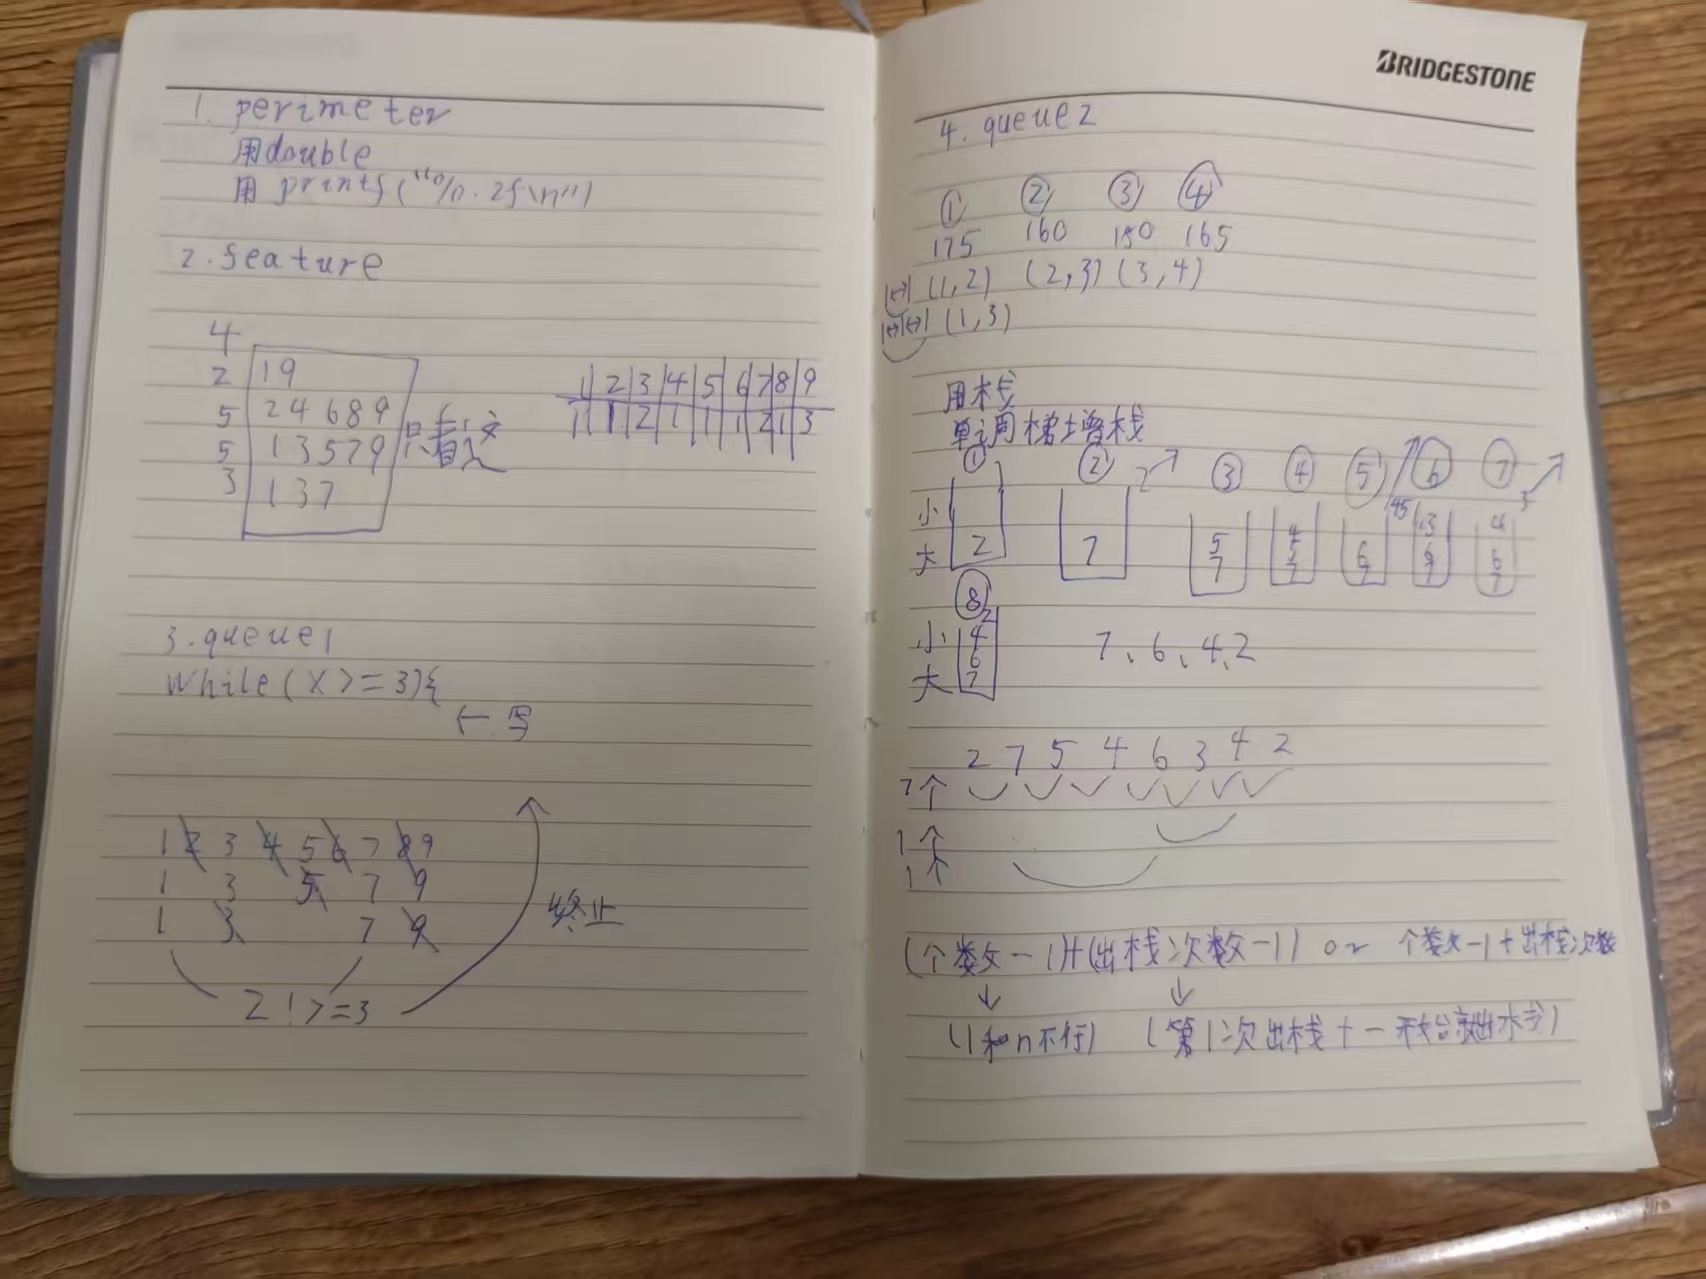 1. perimeter
用double
用 printf("%.2f\n")
2. feature
4
2 19
5 24689
5 13579
3 137
只看这
1 2 3 4 5 6 7 8 9
1 1 2 1 1 1 2 1 3
3. queue1
while(x>=3){
← 写
1 2 3 4 5 6 7 8 9
1 3 5 7 9
1 3 7 9
终止
2 !>=3
BRIDGESTONE
4. queue2
① ② ③ ④
175 160 150 165
(1,2) (2,3) (3,4)
(1,3)
用栈
单调递增栈
① ② ③ ④ ⑤ ⑥ ⑦
2
45
3
小
大
2
7
5
7
4
5
7
6
7
3
6
7
4
6
7
⑧
小
大
2
4
6
7
7、6、4、2
2 7 5 4 6 3 4 2
7个
1个
1个
(个数-1)+(出栈次数-1) or 个数-1+出栈次数
↓ ↓
(1和n不行) (第1次出栈+一开始就出